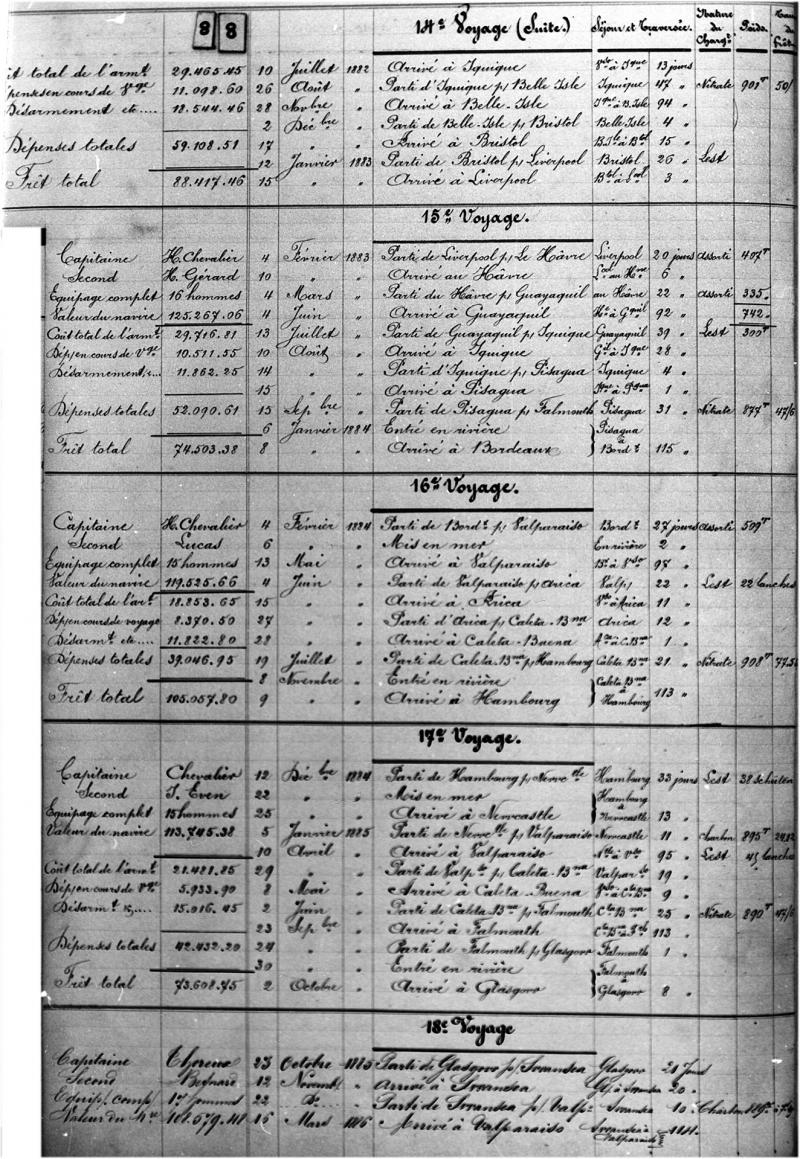 88 14e Voyage (Suite.) Séjour et Traversée. Nature du Chargt. Poids. Taux du Frêt
it total de l'armt. 29.465.45 10 Juillet 1882 Arrivé à Iquique Vso à Ique 13 jours
épenses en cours de Vge 11.098.60 26 Août " Parti d'Iquique p/ Belle Isle Iquique 47 " Nitrate 901T 50/
Désarmement etc.... 18.544.46 28 Novbre " Arrivé à Belle-Isle Ique à B. Isle 94 "
2 Décbre " Parti de Belle-Isle p/ Bristol Belle Isle 4 "
Dépenses totales 59.108.51 17 " " Arrivé à Bristol B. Isle à Btol 15 "
12 Janvier 1883 Parti de Bristol p/ Liverpool Bristol 26 " Lest
Frêt total 88.417.46 15 " " Arrivé à Liverpool Btol à Lool 3 "
15e Voyage.
Capitaine H. Chevalier 4 Février 1883 Parti de Liverpool p/ Le Hâvre Liverpool 20 jours Assorti 407T
Second H. Gérard 10 " " Arrivé au Hâvre Lool au Hvre 6 "
Equipage complet 16 hommes 4 Mars " Parti du Hâvre p/ Guayaquil au Hâvre 22 " Assorti 335.
Valeur du navire 125.267.06 4 Juin " Arrivé à Guayaquil Hre à Gquil 92 " 742.
Coût total de l'armt. 29.716.81 13 Juillet " Parti de Guayaquil p/ Iquique Guayaquil 39 " Lest 300T
Dép/en cours de Vge 10.511.55 10 Août " Arrivé à Iquique Gil à Ique 28 "
Désarmement, &... 11.862.25 14 " " Parti d'Iquique p/ Pisagua Iquique 4 "
15 " " Arrivé à Pisagua Ique à Pgua 1 "
Dépenses totales 52.090.61 15 Sepbre " Parti de Pisagua p/ Falmouth Pisagua 31 " Nitrate 877T 47/6
6 Janvier 1884 Entré en rivière Pisagua
Frêt total 74.503.38 8 " " Arrivé à Bordeaux à Bordx 115 "
16e Voyage.
Capitaine H. Chevalier 4 Février 1884 Parti de Bordx p/ Valparaiso Bordx 27 jours Assorti 509T
Second Lucas 6 " " Mis en mer En rivière 2 "
Equipage complet 15 hommes 13 Mai " Arrivé à Valparaiso Bx à Vso 98 "
Valeur du navire 119.525.66 4 Juin " Parti de Valparaiso p/ Arica Valp/ 22 " Lest 22 lanches
Coût total de l'art. 18.853.65 15 " " Arrivé à Arica Vso à Arica 11 "
Dép/en cours de voyage 8.370.50 27 " " Parti d'Arica p/ Caleta-Bna Arica 12 "
Désarmt etc.... 11.822.80 28 " " Arrivé à Caleta-Buena Aca à C. Bna 1 "
Dépenses totales 39.046.95 19 Juillet " Parti de Caleta Bna p/ Hambourg Caleta Bna 21 " Nitrate 908T
8 Novembre " Entré en rivière Caleta Bna
Frêt total 105.057.80 9 " " Arrivé à Hambourg à Hambourg 113 "
17e Voyage.
Capitaine Chevalier 12 Décbre 1884 Parti de Hambourg p/ Newctle Hambourg 33 jours Lest
Second J. Even 22 " " Mis en mer Hambourg
Equipage complet 15 hommes 25 " " Arrivé à Newcastle à Newcastle 13 "
Valeur du navire 113.745.38 5 Janvier 1885 Parti de Newctle p/ Valparaiso Newcastle 11 " Charbon 895T
10 Avril " Arrivé à Valparaiso Ntle à Vso 95 " Lest 45 lanches
Coût total de l'armt. 21.481.85 29 " " Parti de Valpso p/ Caleta-Bna Valparso 19 "
Dép/en cours de Vge 5.933.90 8 Mai " Arrivé à Caleta-Buena Vso à Cta Bna 9 "
Désarmt &.... 15.016.45 2 Juin " Parti de Caleta Bna p/ Falmouth Cta Bna 25 " Nitrate 890T 47/6
23 Sepbre " Arrivé à Falmouth Cta Bna à Fth 113 "
Dépenses totales 42.432.20 24 " " Parti de Falmouth p/ Glasgow Falmouth 1 "
30 " " Entré en rivière Falmouth
Frêt total 73.608.75 2 Octobre " Arrivé à Glasgow à Glasgow 8 "
18e Voyage
Capitaine Thoreux 23 Octobre 1885 Parti de Glasgow p/ Swansea Glasgow 21 Jours
Second 12 Novemb " Arrivé à Swansea à Swansea 20 "
Equip. comp/ 17 hommes 22 Do " Parti de Swansea p/ Valp. Swansea 10 " Charbon
Valeur du Nre 16 Mars 1886 Arrivé à Valparaiso Swansea à Valparaiso 114.